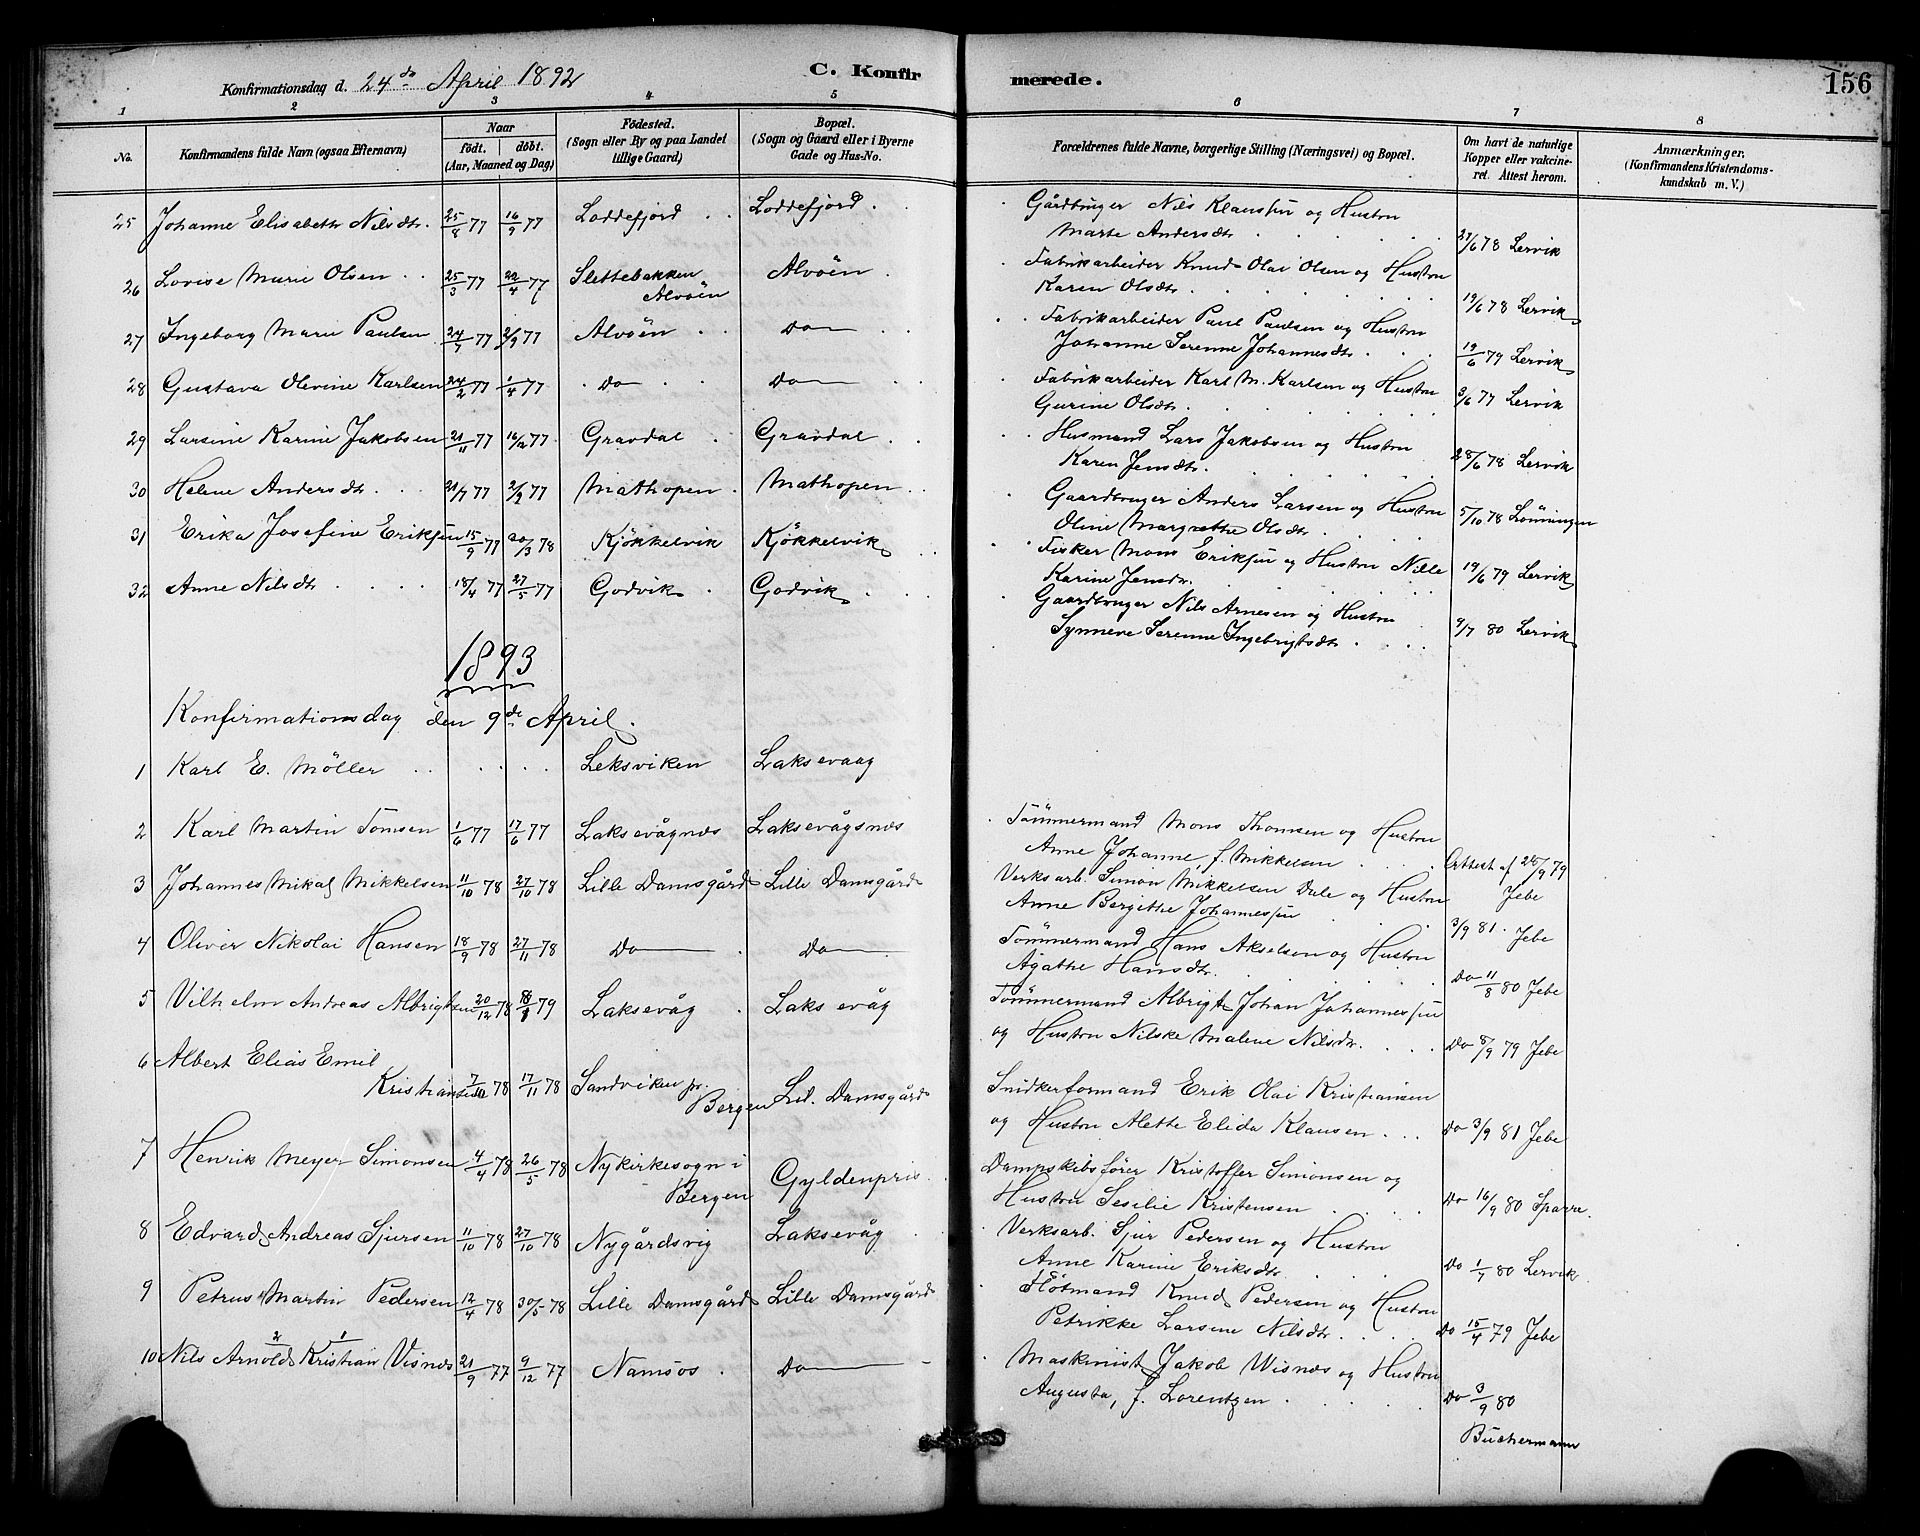 Konfirmationsdag d. 24de April 1892
C. Konfir
merede.
156
1 2 3 4 5 6 7 8
No.
Konfirmandens fulde Navn (ogsaa Efternavn)
Naar
født. døbt.
(Aar, Maaned og Dag)
Fødested.
(Sogn eller By og paa Landet
tillige Gaard)
Bopæl.
(Sogn og Gaard eller i Byerne
Gade og Hus-No.
Forældrenes fulde Navne, borgerlige Stilling (Næringsvei) og Bopæl.
Om havt de naturlige
Kopper eller vakcine-
ret. Attest herom.
Anmærkninger.
(Konfirmandens Kristendoms-
kundskab m. V.)
25 Johanne Elisabeth Nilsdtr. 25/8 77 16/9 77 Loddefjord Loddefjord Gårdbruger Nils Klausen og Hustru
Marte Andersdtr 27/6 78 Lervik
26 Lovise Marie Olsen 25/3 77 22/4 77 Slettebakken Alvöen Fabrikarbeider Knud Olai Olsen og Hustru
Alvöen Karen Olsdtr. 19/6 78 Lervik
27 Ingeborg Marie Paulsen 24/7 77 2/9 77 Alvöen Do Fabrikarbeider Paul Paulsen og Hustru
Johanne Serenne Johannesdtr. 19/6 79 Lervik
28 Gustava Olevine Karlsen 24/2 77 1/4 77 Do Do Fabrikarbeider Karl M. Karlsen og Hustru
Gurine Olsdtr. 3/6 77 Lervik
29 Larsine Karine Jakobsen 21/11 77 16/12 77 Gravdal Gravdal Husmand Lars Jakobsen og Hustru
Karen Jensdtr. 28/6 78 Lervik
30 Helene Andersdtr. 21/7 77 2/9 77 Mathopen Mathopen Gaardbruger Anders Larsen og Hustru
Oline Margrethe Olsdtr. 5/10 78 Lönningen
31 Erika Josefine Eriksen 15/9 77 20/3 78 Kjøkkelvik Kjøkkelvik Fisker Mons Eriksen og Hustru Nille
Karine Jensdtr. 19/6 79 Lervik
32 Anne Nilsdtr 18/4 77 27/5 77 Godvik Godvik Gaardbruger Nils Arnesen og Hustru
Synneve Serenne Ingebrigtsdtr. 9/7 80 Lervik
1893
Konfirmationsdag den 9de April.
1 Karl E. Möller Leksviken Laksevaag
2 Karl Martin Tomsen 1/6 77 17/6 77 Laksevågnæs Laksevågsnæs Tömmermand Mons Thomsen og Hustru
Anne Johanne f. Mikkelsen Attest af 25/9 79
Jebe
3 Johannes Mikal Mikkelsen 11/10 78 27/10 78 Lille Damsgård Lille Damsgård Verksarb. Simon Mikkelsen Dale og Hustru
Anne Bergithe Johannessen 3/9 81. Jebe
4 Oliver Nikolai Hansen 18/9 78 27/11 78 Do Do Tömmermand Hans Akselsen og Hustru
Agathe Hansdtr. Do 11/8 80 Jebe
5 Vilhelm Andreas Albrigtsen 20/12 78 79 Laksevåg Laksevåg Tömmermand Albrigt Johan Johannessen
og Hustru Nilske Malene Nilsdtr. Do 8/9 79 Jebe
6 Albert Elias Emil
Kristiansen 7/10 78 17/11 78 Sandviken pr. Bergen Lil. Damsgård Snidkerformand Erik Olai Kristiansen
og Hustru Alette Elida Klausen Do 3/9 81 Jebe
7 Henrik Meyer Simonsen 4/4 78 26/5 78 Nykirkesogn i Bergen Gyldenpris Dampskibsfører Kristoffer Simonsen og
Hustru Sesilie Kristensen Do 16/9 80 Sparre.
8 Edvard Andreas Sjursen 11/10 78 27/10 78 Nygårdsvig Laksevåg Verksarb. Sjur Pedersen og Hustru
Anne Karine Eriksdtr Do 1/7 80 Lervik.
9 Petrus Martin Pedersen 12/4 78 30/5 78 Lille Damsgård Lille Damsgård Flötmand Knud Pedersen og Hustru
Petrikke Larsine Nilsdtr. Do 15/4 79 Jebe
2 1
10 Nils Arnold Kristian Visnæs 21/9 77 9/12 77 Namsos Do Maskinist Jakob Wisnæs og Hustru
Augusta, f. Lorentzen Do 3/9 80
Buchermann